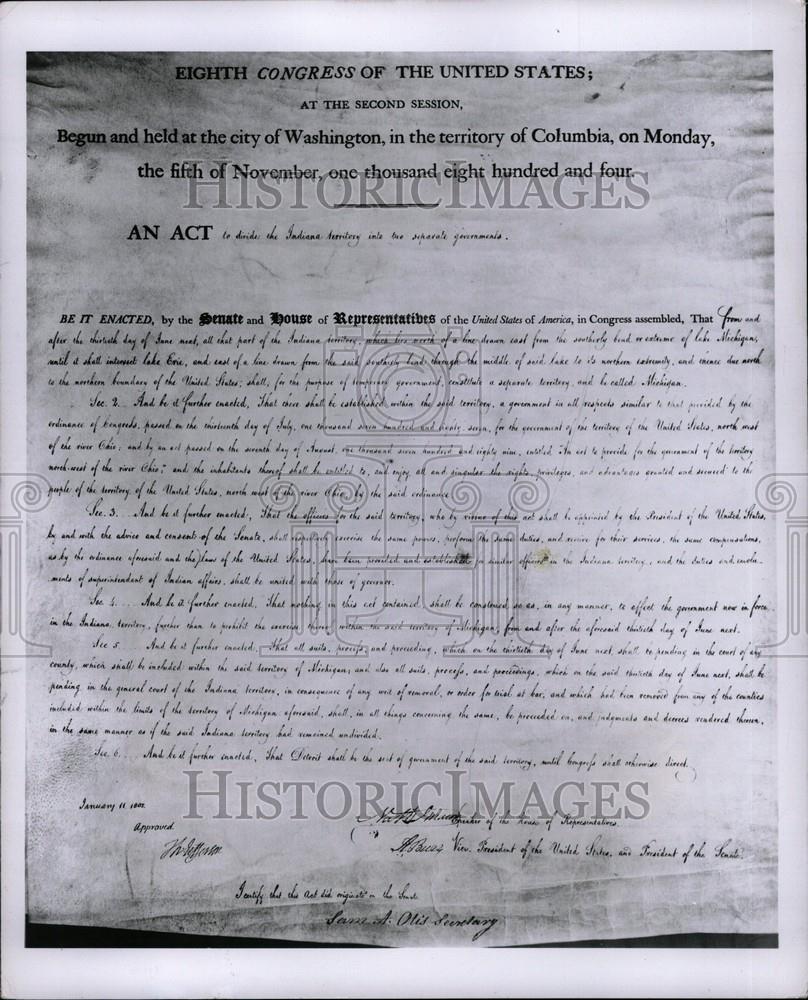 EIGHTH CONGRESS OF THE UNITED STATES;
AT THE SECOND SESSION,
Begun and held at the city of Washington, in the territory of Columbia, on Monday,
the fifth of November, one thousand eight hundred and four.
HISTORICIMAGES
AN ACT to divide the Indiana territory into two separate governments.
BE IT ENACTED, by the Senate and House of Representatives of the United States of America, in Congress assembled, That from and
after the thirtieth day of June next, all that part of the Indiana territory, which lies north of a line drawn east from the southerly bend or extreme of lake Michigan,
until it shall intersect lake Erie, and east of a line drawn from the said southerly bend through the middle of said lake to its northern extremity, and thence due north
to the northern boundary of the United States, shall, for the purpose of temporary government, constitute a separate territory, and be called Michigan.
Sec. 2. And be it further enacted, That there shall be established within the said territory, a government in all respects similar to that provided by the
ordinance of Congress, passed on the thirteenth day of July, one thousand seven hundred and eighty-seven, for the government of the territory of the United States, north west
of the river Ohio; and by an act passed on the seventh day of August, one thousand seven hundred and eighty nine, entitled "An act to provide for the government of the territory
north-west of the river Ohio;" and the inhabitants thereof shall be entitled to, and enjoy all and singular the rights, privileges, and advantages granted and secured to the
people of the territory of the United States, north west of the river Ohio, by the said ordinance.
Sec. 3. And be it further enacted, That the officers for the said territory, who by virtue of this act shall be appointed by the President of the United States,
by and with the advice and consent of the Senate, shall respectively exercise the same powers, perform the same duties, and receive for their services, the same compensations,
as by the ordinance aforesaid and the laws of the United States, have been provided and established for similar officers in the Indiana territory, and the duties and emolu-
ments of superintendant of Indian affairs, shall be united with those of governor.
Sec. 4. And be it further enacted, That nothing in this act contained, shall be construed so as, in any manner, to affect the government now in force
in the Indiana territory, further than to prohibit the exercise thereof within the said territory of Michigan, from and after the aforesaid thirtieth day of June next.
Sec 5. And be it further enacted, That all suits, process, and proceeding, which on the thirtieth day of June next, shall be pending in the court of any
county, which shall be included within the said territory of Michigan; and also all suits, process, and proceedings, which on the said thirtieth day of June next, shall be
pending in the general court of the Indiana territory, in consequence of any writ of removal, or order for trial at bar, and which had been removed from any of the counties
included within the limits of the territory of Michigan aforesaid, shall, in all things concerning the same, be proceeded on, and judgments and decrees rendered thereon,
in the same manner as if the said Indiana territory had remained undivided.
Sec. 6. And be it further enacted, That Detroit shall be the seat of government of the said territory, until Congress shall otherwise direct.
HISTORICIMAGES
January 11 1805.
Speaker of the House of Representatives.
Approved.
A. Burr Vice President of the United States, and President of the Senate.
Th Jefferson
I certify that this Act did originate in the Senate
Sam A. Otis Secretary